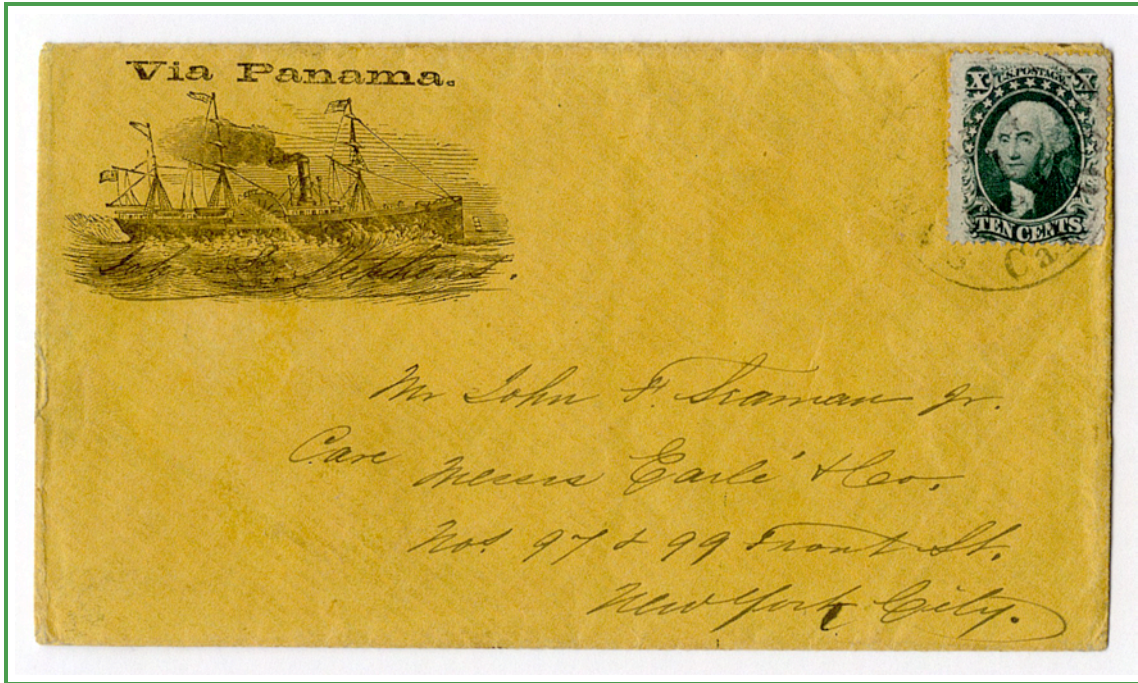 Via Panama.
X U.S. POSTAGE X
TEN CENTS
Cal
John
Mr John F. Seaman Jr.
Care Messrs Earle & Co.
Nos. 97 & 99 Front St.
New York City.